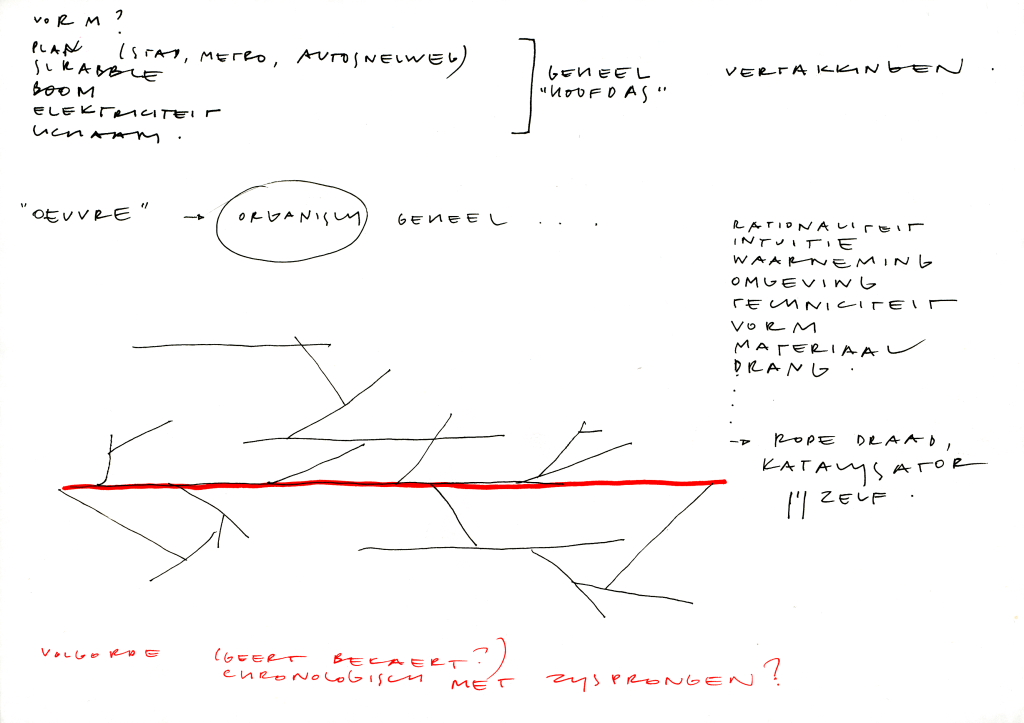 VORM?
PLAN (STAD, METRO, AUTOSNELWEG)
SCRABBLE
BOOM
ELEKTRICITEIT
LICHAAM.
GEHEEL
"HOOFDAS"
VERTAKKINGEN.
"OEUVRE" → ORGANISCH GEHEEL ....
RATIONALITEIT
INTUITIE
WAARNEMING
OMGEVING
TECHNICITEIT
VORM
MATERIAAL
DRANG.
→ RODE DRAAD,
KATALYSATOR
ZELF.
VOLGORDE (GEERT BEKAERT?)
CHRONOLOGISCH MET ZIJSPRONGEN?